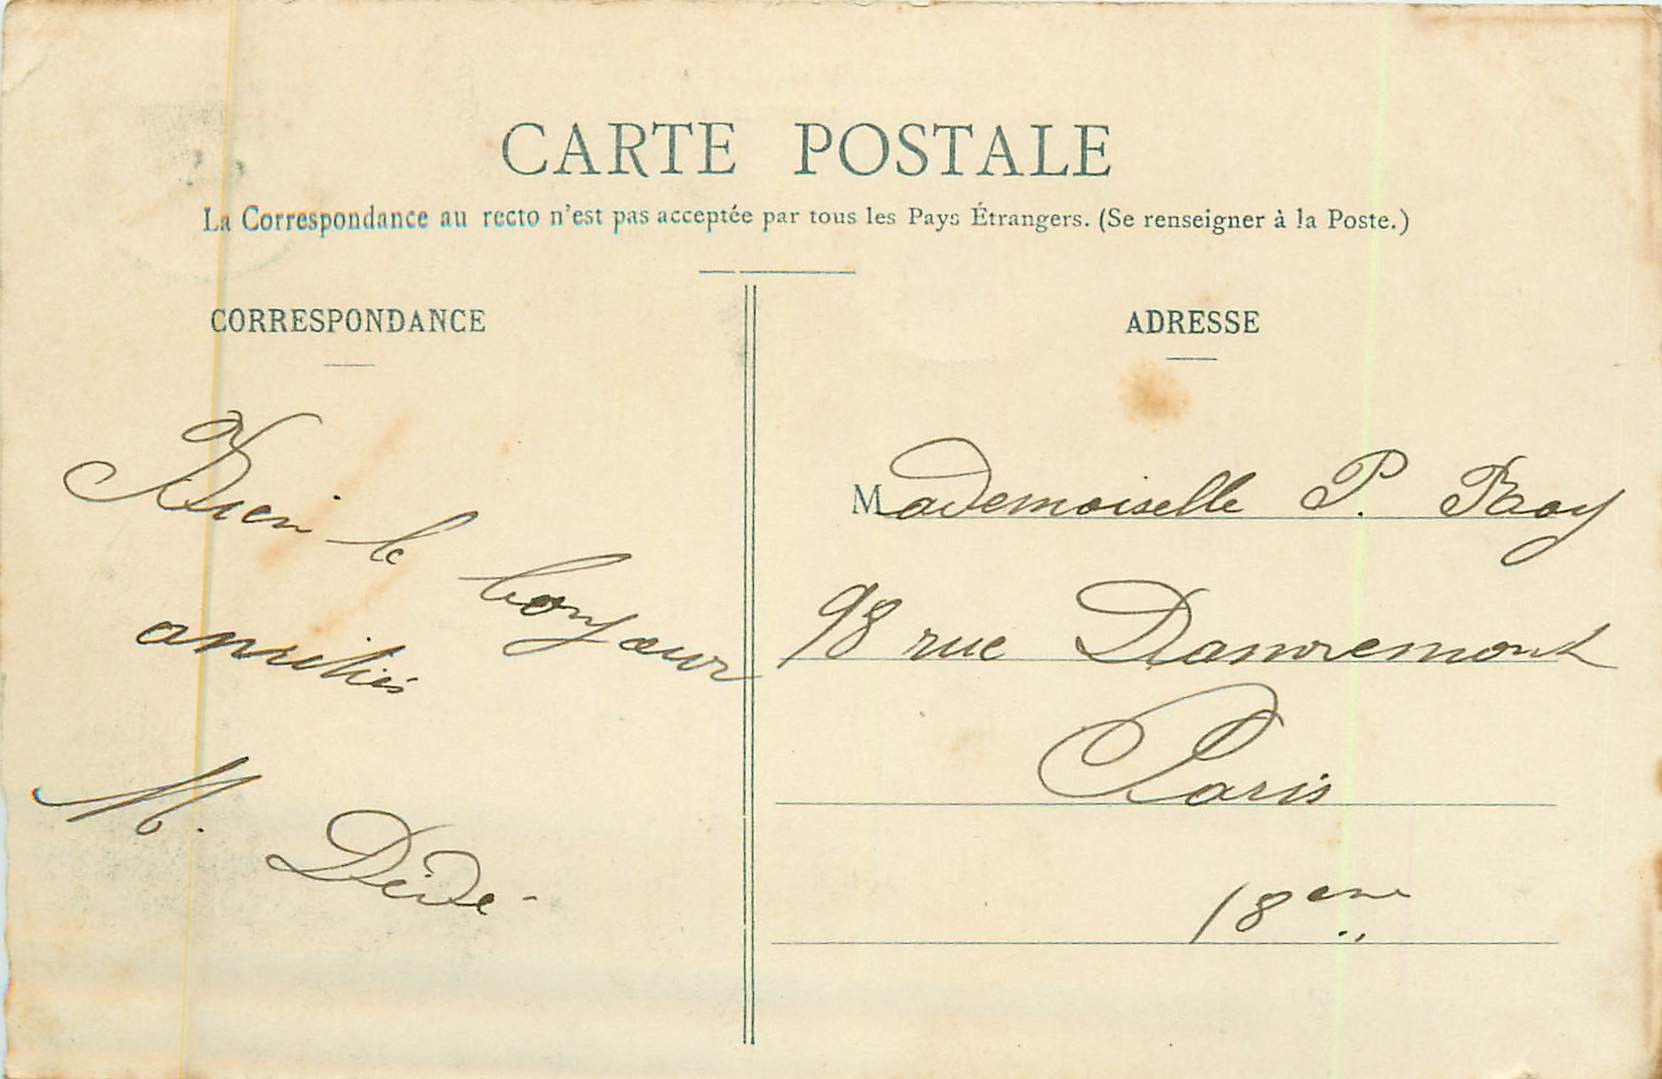 CARTE POSTALE
La Correspondance au recto n'est pas acceptée par tous les Pays Étrangers. (Se renseigner à la Poste.)
CORRESPONDANCE
Bien le bonjour
amitiés
M. Dédé
ADRESSE
Mademoiselle P. Roy
98 rue Damremont
Paris
18eme